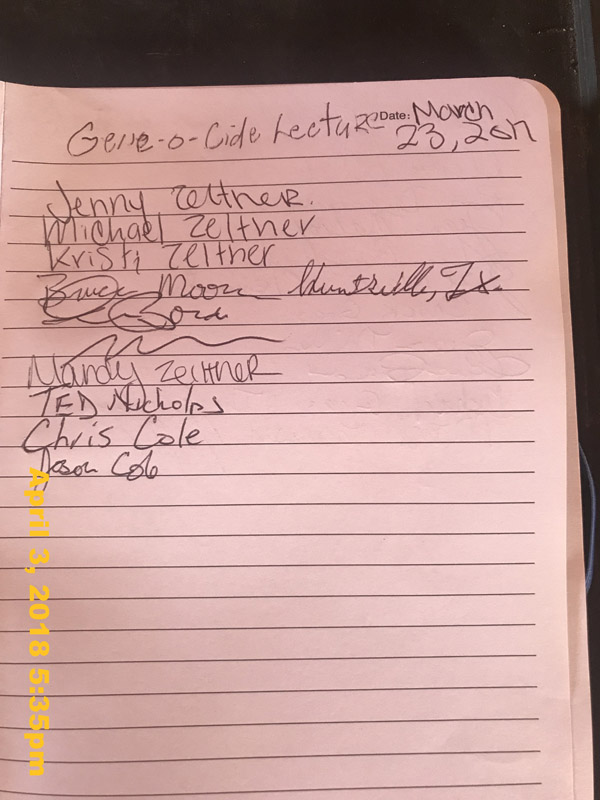 Gene-o-Cide Lecture Date: March
23, 2017
Jenny Zeltner.
Michael Zeltner
Kristi Zeltner
Bruce Moon Huntsville, Tx.
Mandy Zeltner
TED Nicholas
Chris Cole
Jason Cole
April 3, 2018 5:35pm